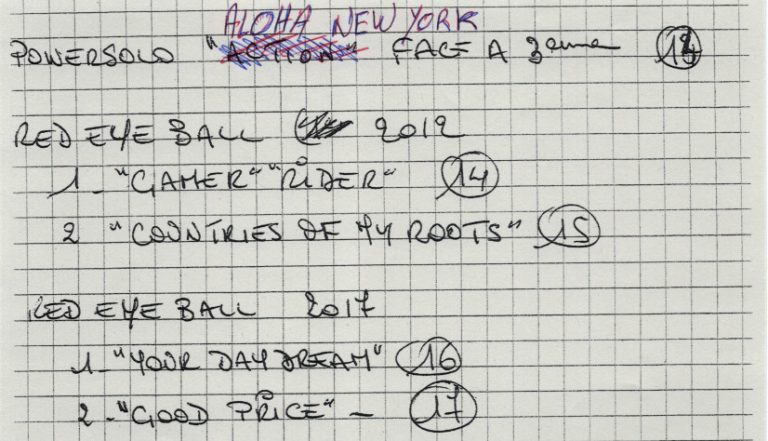 ALOHA NEW YORK
POWERSOLO "ACTION" FACE A 3eme 13
RED EYE BALL 2012
1 - "GAMER" "RIDER" 14
2 "COUNTRIES OF MY ROOTS" 15
RED EYE BALL 2017
1 - "YOUR DAY DREAM" 16
2 - "GOOD PRICE" - 17